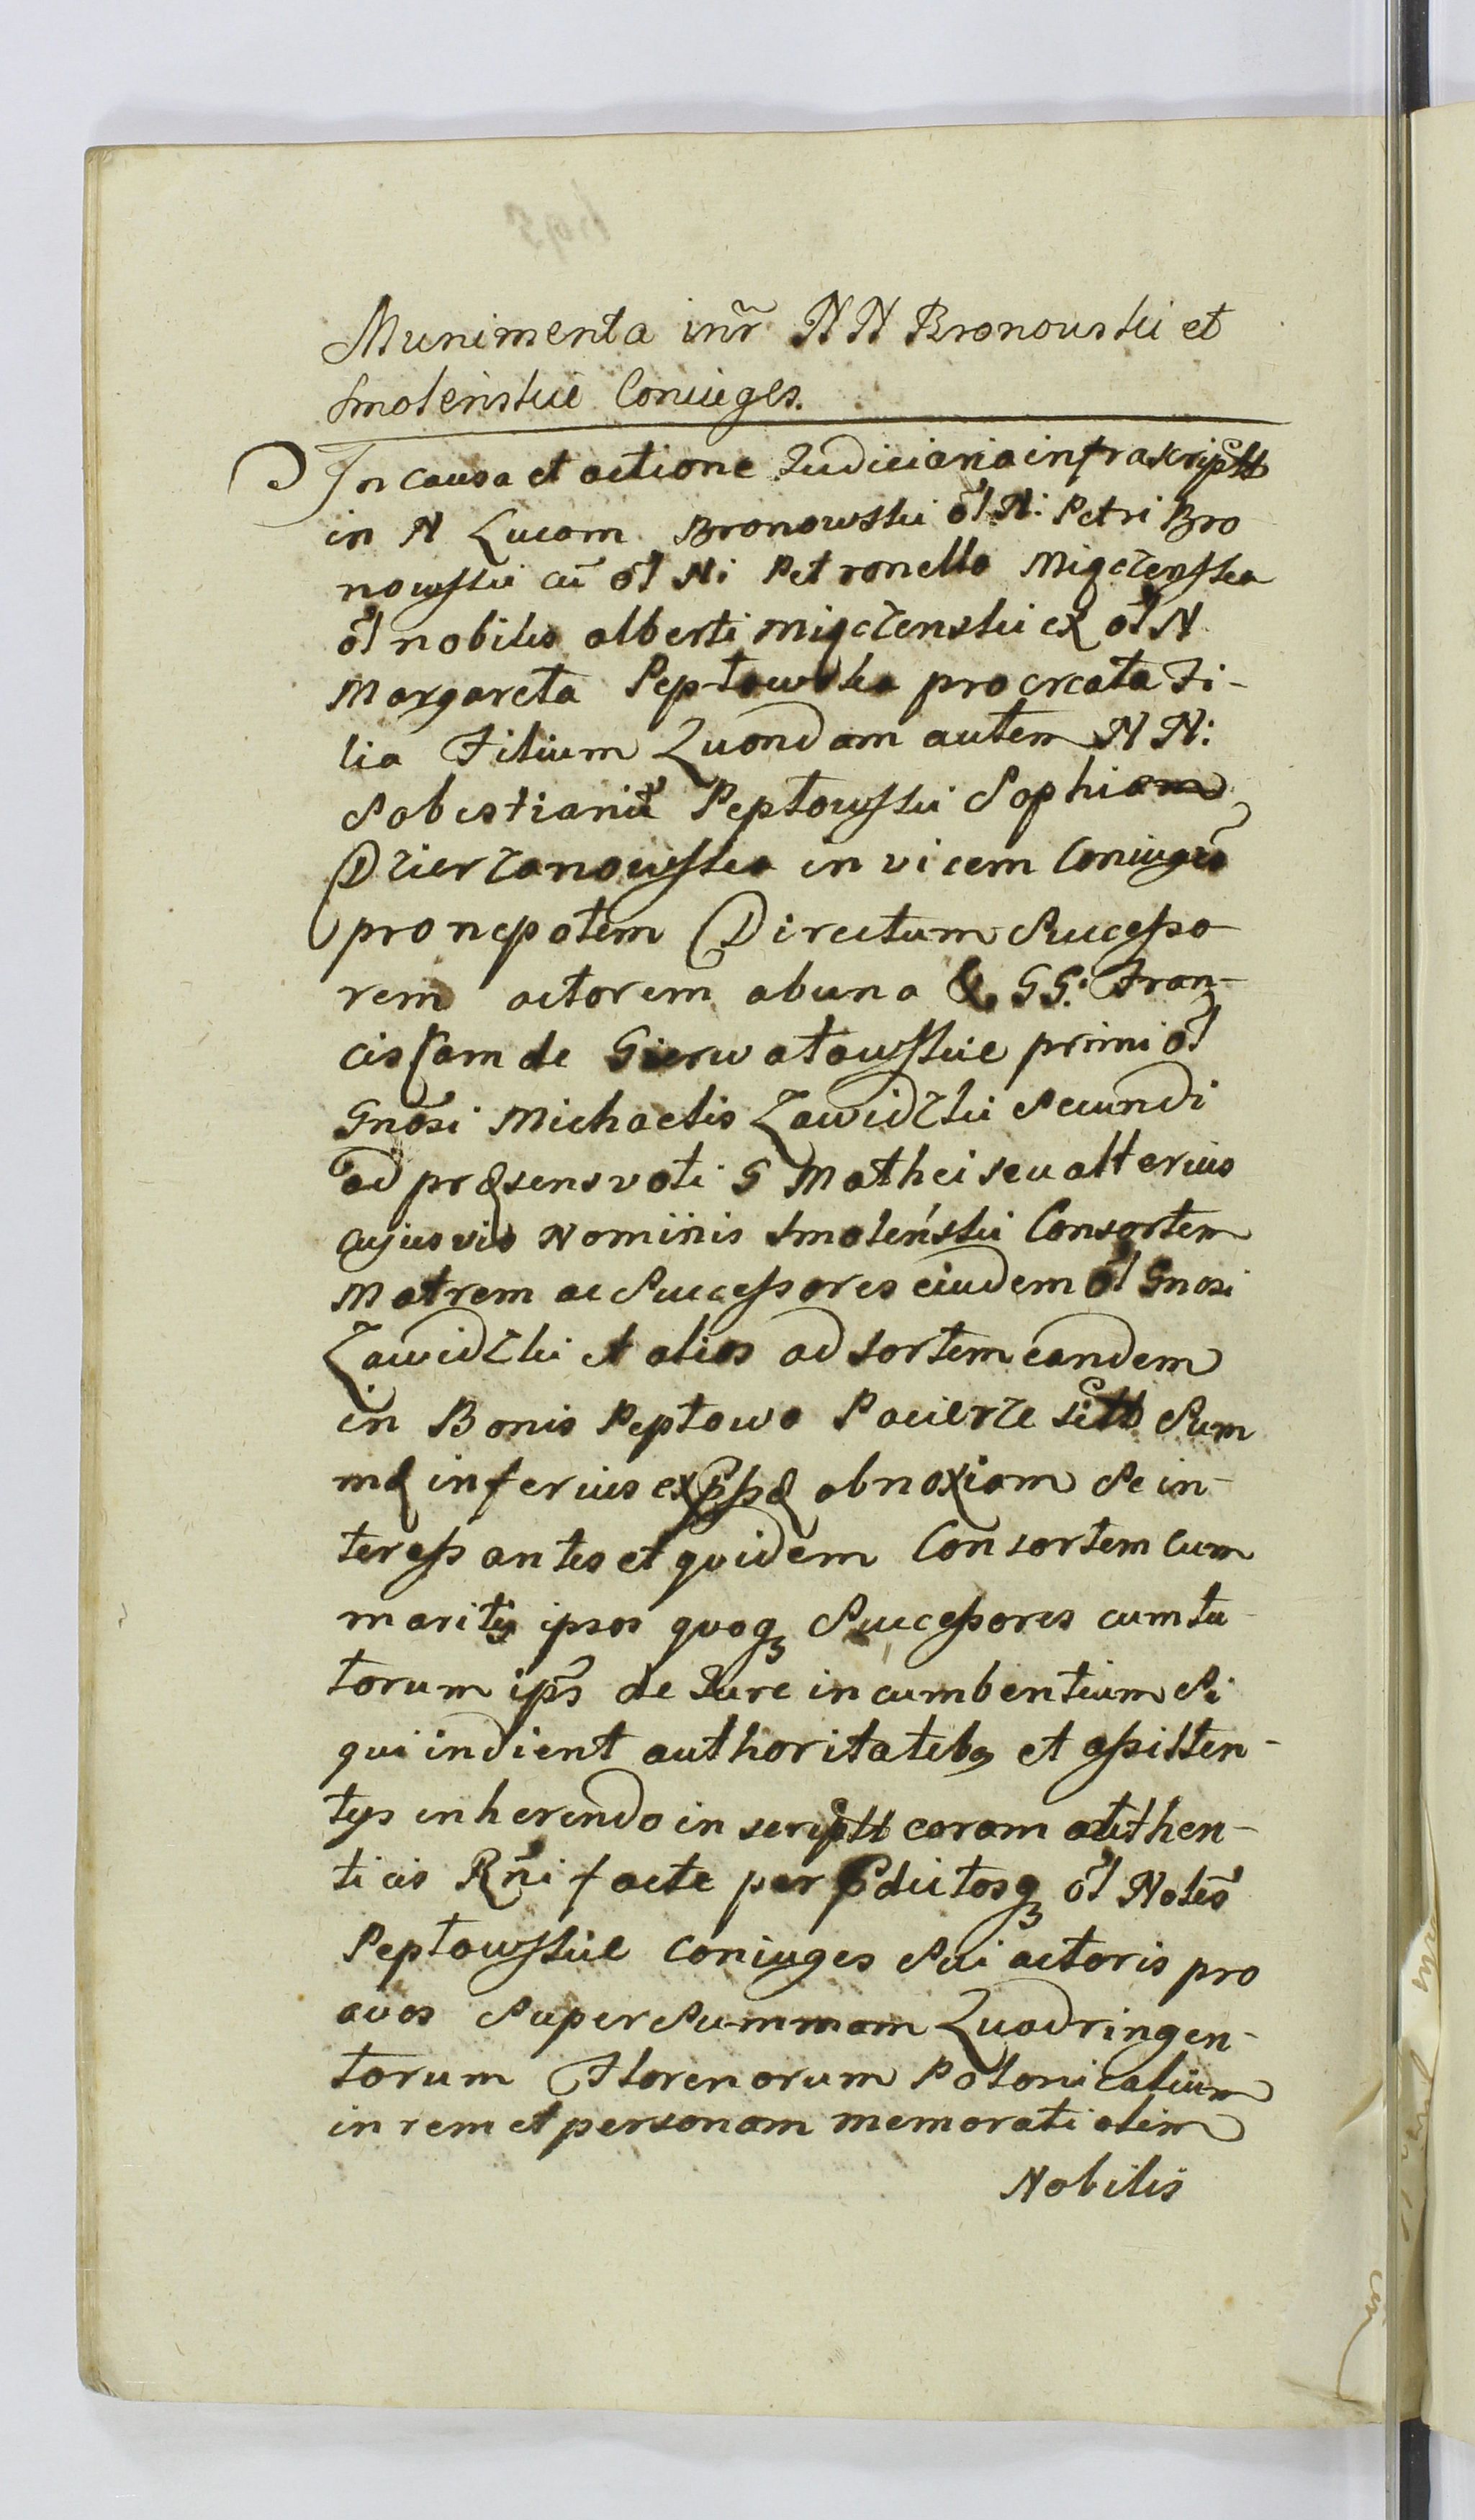 Munimenta inr̃ NN Bronowski et
Smolenskie Coniuges.
In causa et actione Judiciaria infrascriptt
in N Lucam Bronowski ol N: Petri Bro
nowski cũ ol N: Petronella Miączenska
ol nobilis alberti miączenski ex ol N
Margareta Peptowska procreata Fi-
lia Filium Quondam autem NN:
Sabestianũ Peptowski Sophiam
Dzierzanowska in vicem Coniugũ
pronepotem Directum Successo
rem actorem abuna & GG: Fran-
ciscam de Gierwatowskie primi ol
Gnosi Michaelis Zawidzki Secundi
ad pręsens voti G Mathei seu alterius
cujusvis Nominis Smoleński Consortem
Matrem ac Successores eiudem ol Gnosi
Zawidzki et alios ad sortem eandem
in Bonis Peptowo Pacierze sitt Sum
mę inferius exp̃ssę obnoxiam se in-
teressantes et quidem Consortem cum
maritij ipsos quoq Successores cum tu
torum ips̃ de Jure incumbentium Si
qui indient authoritateb9 et assisten-
tijs inherendo in scriptt coram authen-
ticis Rñi facte per p̃dictosq ol Noles̃
Peptowskie coniuges Sui actoris pro
avos Super Summam Quadringen-
torum Florenorum Polonicalium
in rem et personam memorati olim
Nobilis